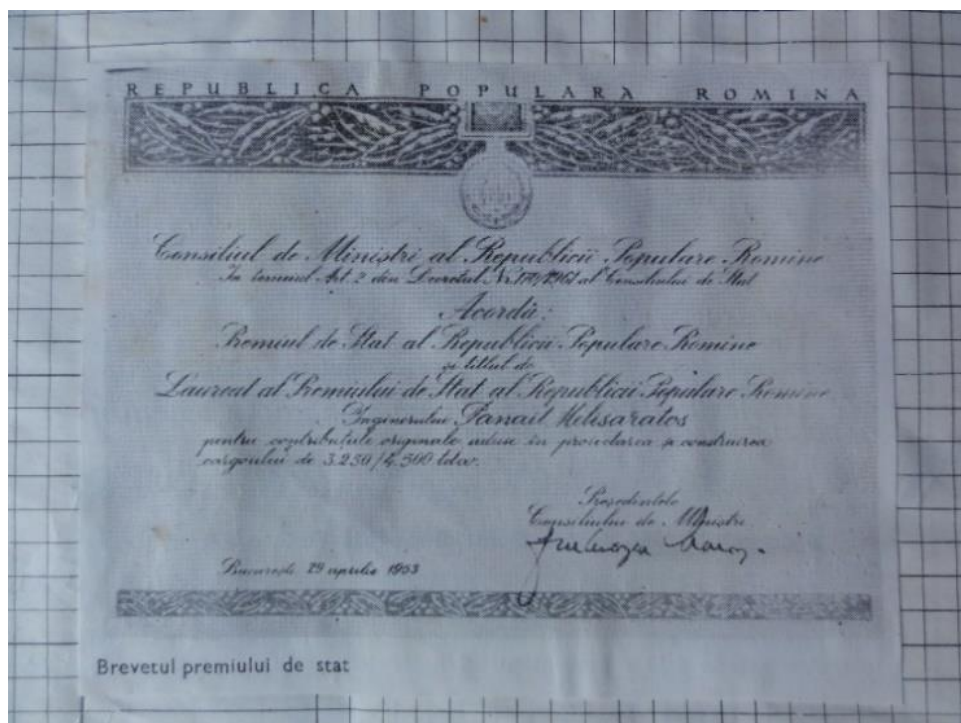 REPUBLICA POPULARA ROMINA
Consiliul de Miniștri al Republicii Populare Romine
In temeiul Art. 2 din Decretul Nr. al Consiliului de Stat
Acordă:
Premiul de Stat al Republicii Populare Romine
și titlul de
Laureat al Premiului de Stat al Republicii Populare Romine
Inginerului Panait Melisaratos
pentru contribuțiile originale aduse în proiectarea și construirea
cargoului de 3.250/4.500 tdw.
Președintele
Consiliului de Miniștri
București 29 aprilie
Brevetul premiului de stat